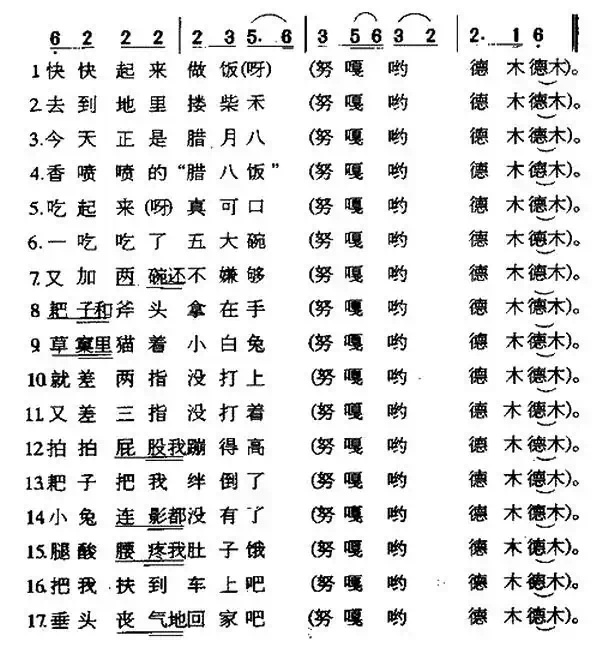 6 2 2 2 | 2 3 5. 6 | 3 5 6 3 2 | 2. 1 6 ‖
1.快快起来做饭(呀) (努嘎哟 德木德木)。
2.去到地里搂柴禾 (努嘎哟 德木德木)。
3.今天正是腊月八 (努嘎哟 德木德木)。
4.香喷喷的“腊八饭” (努嘎哟 德木德木)。
5.吃起来(呀)真可口 (努嘎哟 德木德木)。
6.一吃吃了五大碗 (努嘎哟 德木德木)。
7.又加两碗还不嫌够 (努嘎哟 德木德木)。
8.耙子和斧头拿在手 (努嘎哟 德木德木)。
9.草窠里猫着小白兔 (努嘎哟 德木德木)。
10.就差两指没打上 (努嘎哟 德木德木)。
11.又差三指没打着 (努嘎哟 德木德木)。
12.拍拍屁股我蹦得高 (努嘎哟 德木德木)。
13.耙子把我绊倒了 (努嘎哟 德木德木)。
14.小兔连影都没有了 (努嘎哟 德木德木)。
15.腿酸腰疼我肚子饿 (努嘎哟 德木德木)。
16.把我扶到车上吧 (努嘎哟 德木德木)。
17.垂头丧气地回家吧 (努嘎哟 德木德木)。